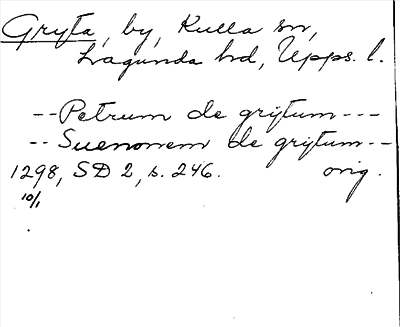 Gryta, by, Kulla sn,
Lagunda hd, Upps. l.
-- Petrum de grytum ---
-- Suenonem de grytum --
1298, SD 2, s. 246. orig.
10/1